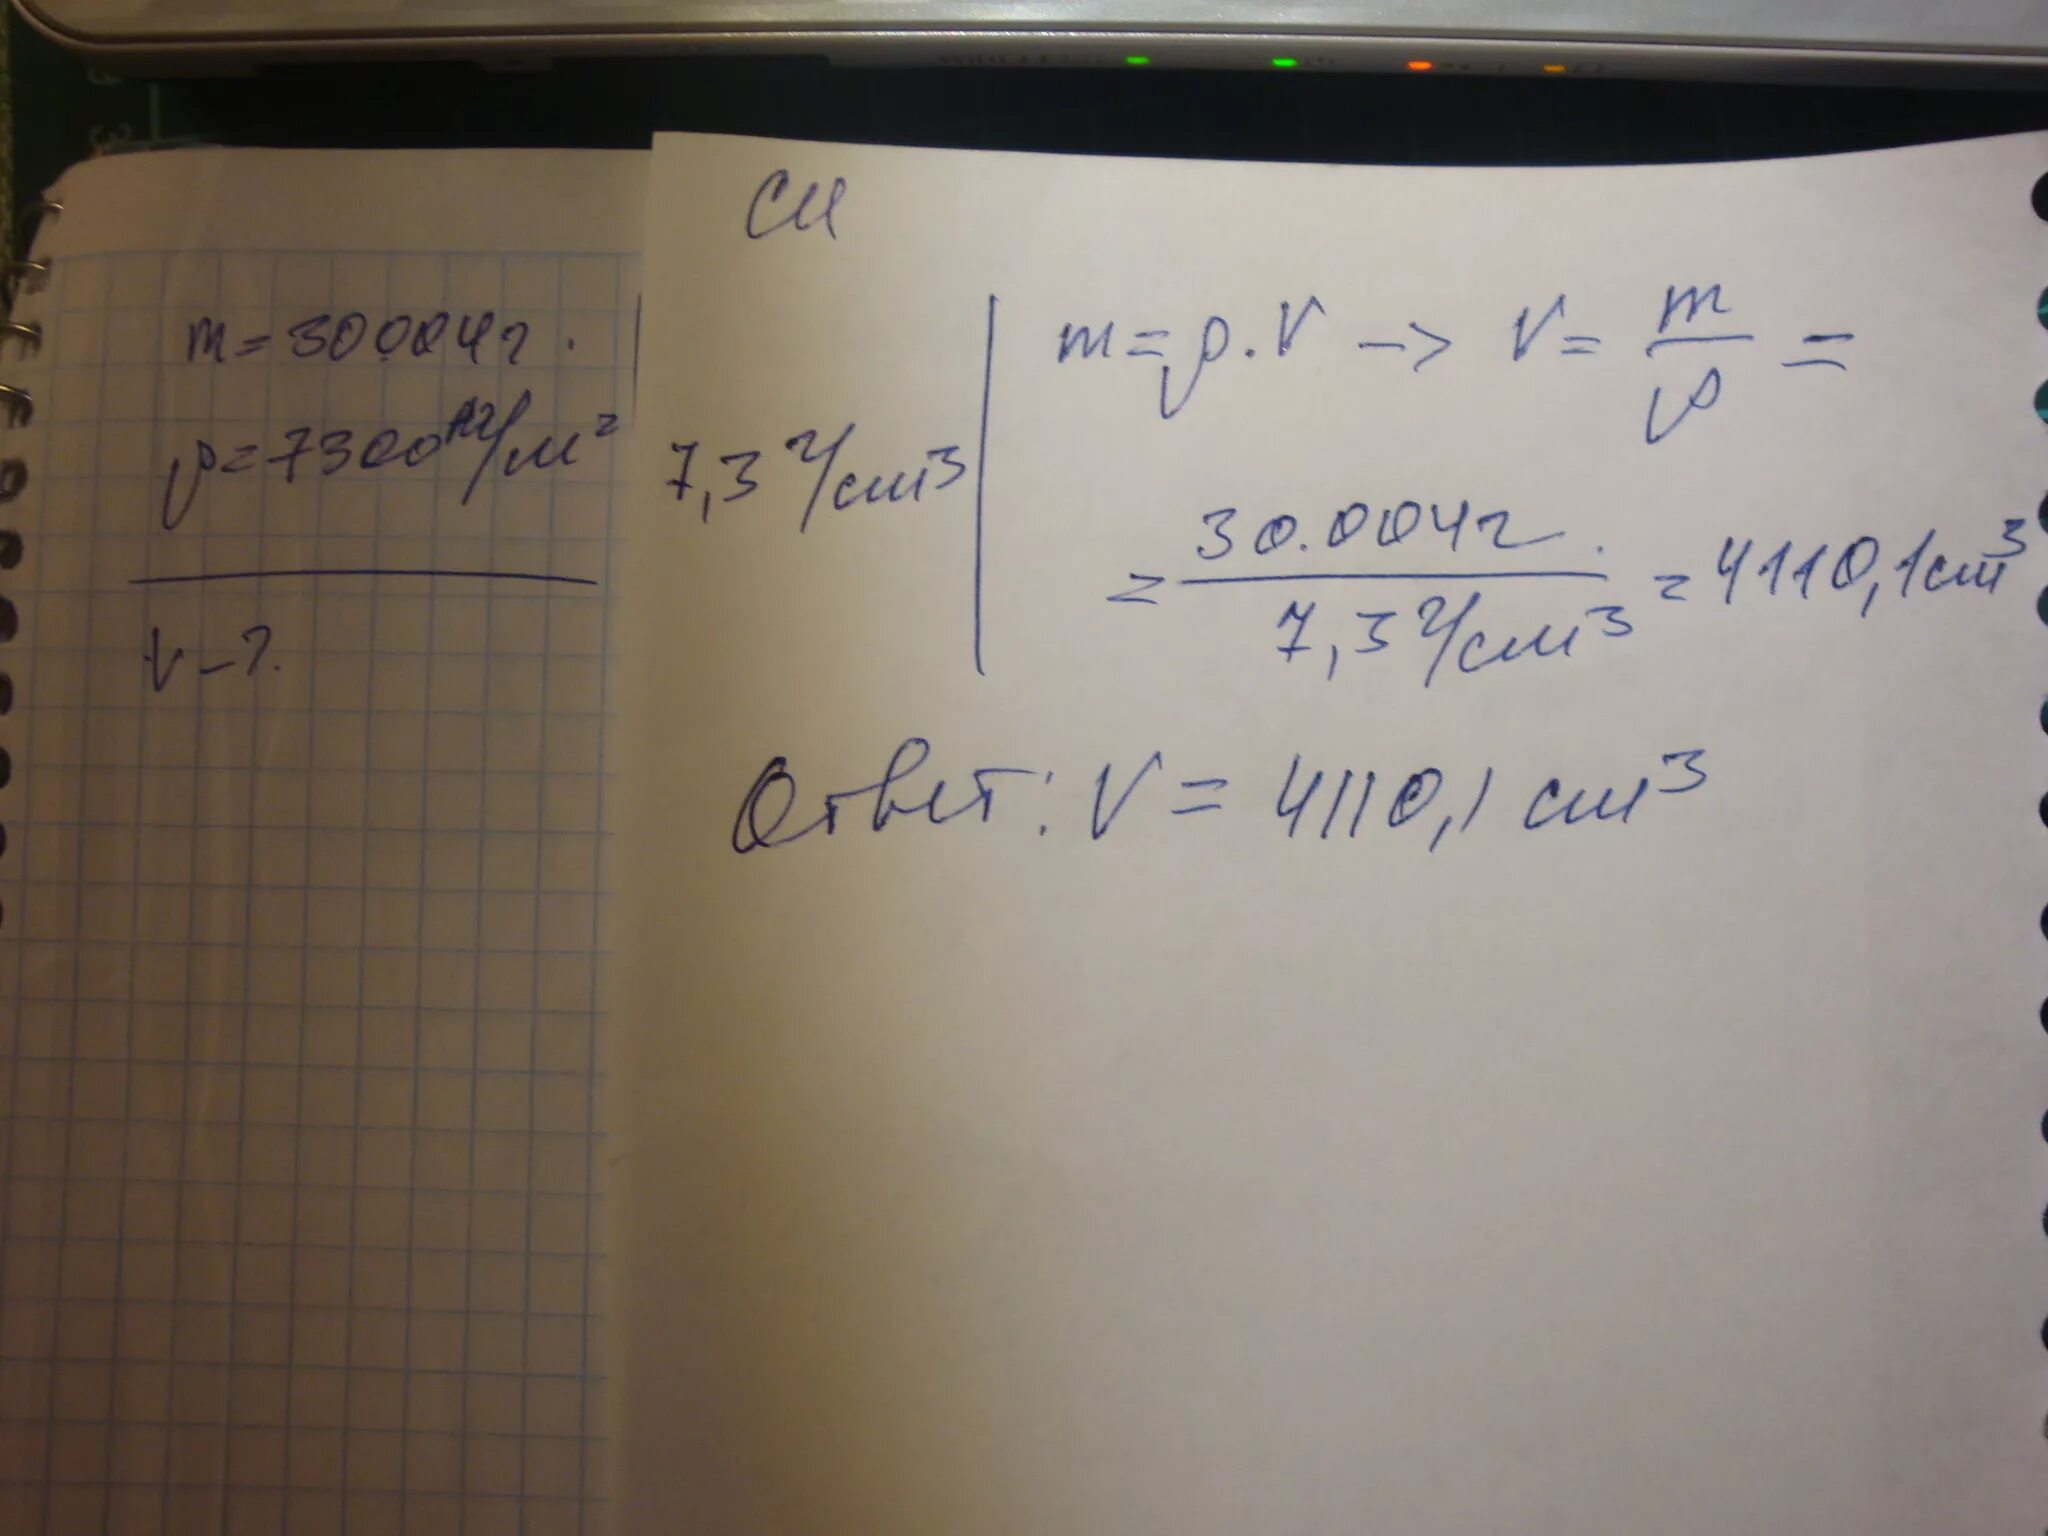 СИ
m = 30.004г.
ρ = 7300кг/м²
V - ?
7,3 г/см³
m = ρ · V -> V = m/ρ =
= 30.004г. / 7,3 г/см³ = 4110,1 см³
Ответ: V = 4110,1 см³